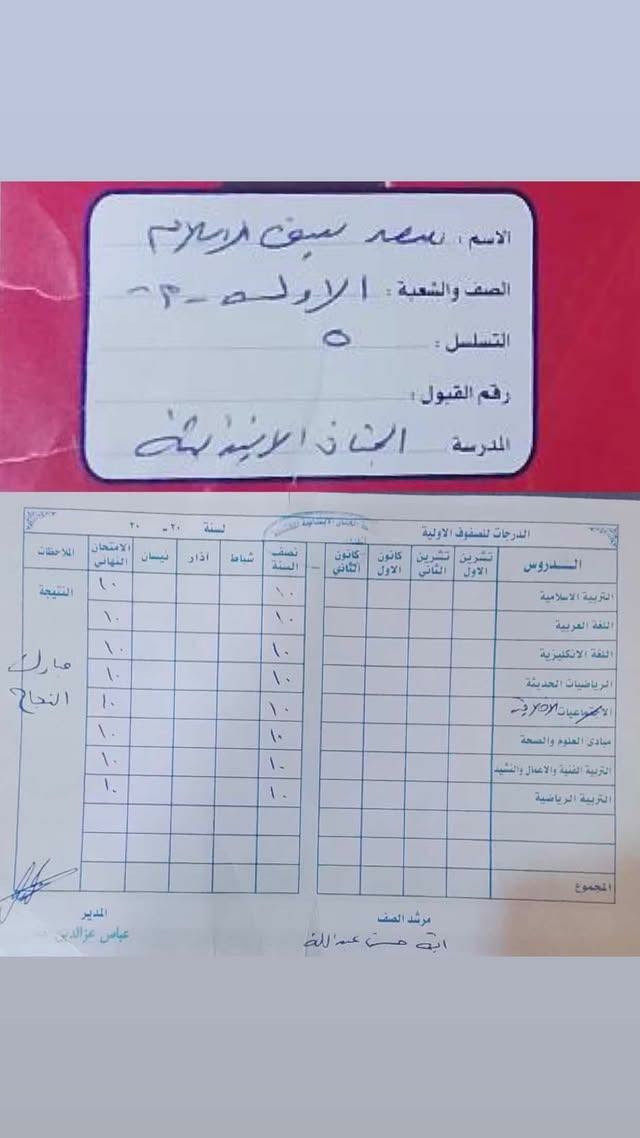 الاسم : سيف الاسلام
الصف والشعبة : الاول - م -
التسلسل : ٥
رقم القبول :
المدرسة الابتدائية
الدرجات للصفوف الاولية لسنة ٢٠ - ٢٠
الـــدروس تشرين الاول تشرين الثاني كانون الاول كانون الثاني نصف السنة شباط اذار نيسان الامتحان النهائي الملاحظات
التربية الاسلامية ١٠ ١٠ النتيجة
اللغة العربية ١٠ ١٠
اللغة الانكليزية ١٠ ١٠
الرياضيات الحديثة ١٠ ١٠ مبارك
الاخلاقية ١٠ ١٠ النجاح
مبادئ العلوم والصحة ١٠ ١٠
التربية الفنية والاعمال والنشيد ١٠ ١٠
التربية الرياضية ١٠ ١٠
المجموع
مرشد الصف المدير
اية حسن عبدالله عباس عزالدين